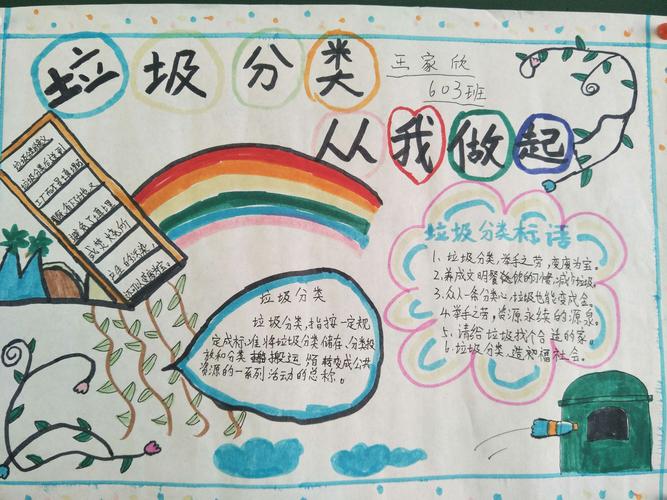 垃圾分类
王家欣
603班
从我做起
垃圾分类
垃圾分类,指按一定规
定或标准将垃圾分类储存、分类投
放和分类搬运,
资源的一系列活动的总称。
垃圾分类标语
1、垃圾分类,举手之劳,变废为宝。
2.养成文明
3.众人一条分类心,垃圾也能变成金。
4.举手之劳,资源永续的源泉。
5.请给垃圾找个合适的家。
6.垃圾分类,造福社会。
垃圾分类意义
或焚烧所
产生的污染,